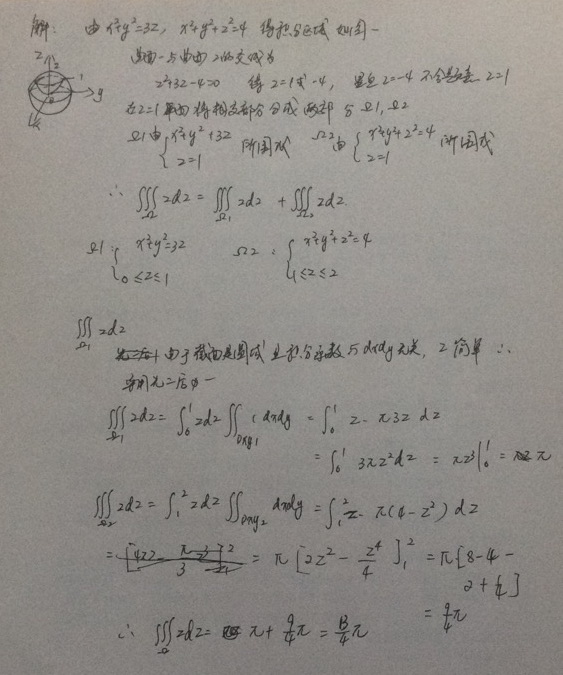 解: 由 x²+y²=3z, x²+y²+z²=4 得积分区域 如图一
曲面一与曲面2的交线为
z²+3z-4=0 得 z=1或-4, 显然z=-4 不合题意 z=1
在z=1平面将相交部分分成两部分 Ω1, Ω2
Ω1由 { x²+y²=3z z=1 所围成 Ω2由 { x²+y²+z²=4 z=1 所围成
∴ ∭Ω zdz = ∭Ω1 zdz + ∭Ω2 zdz.
Ω1: { x²+y²=3z 0≤z≤1 Ω2: { x²+y²+z²=4 1≤z≤2
∭Ω1 zdz
由于截面是圆域 且积分函数与dxdy无关, z简单 ∴
采用先二后一
∭Ω1 zdz = ∫₀¹ zdz ∬Dxy1 1 dxdy = ∫₀¹ z·π3z dz
= ∫₀¹ 3πz²dz = πz³|₀¹ = π
∭Ω2 zdz = ∫₁² zdz ∬Dxy2 dxdy = ∫₁² z·π(4-z²)dz
= π[2z² - z⁴/4]₁² = π[8-4-
2+1/4]
= 9/4π
∴ ∭Ω zdz = π + 9/4π = 13/4π